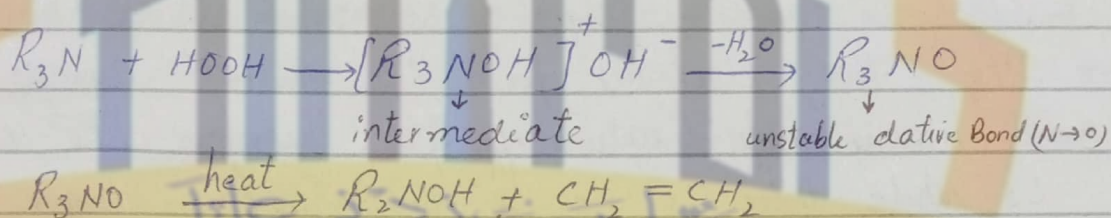 R₃N + HOOH ⟶ [R₃NOH]⁺OH⁻ −H₂O⟶ R₃NO
↓ ↓
intermediate unstable dative Bond (N→O)
R₃NO heat⟶ R₂NOH + CH₂ = CH₂